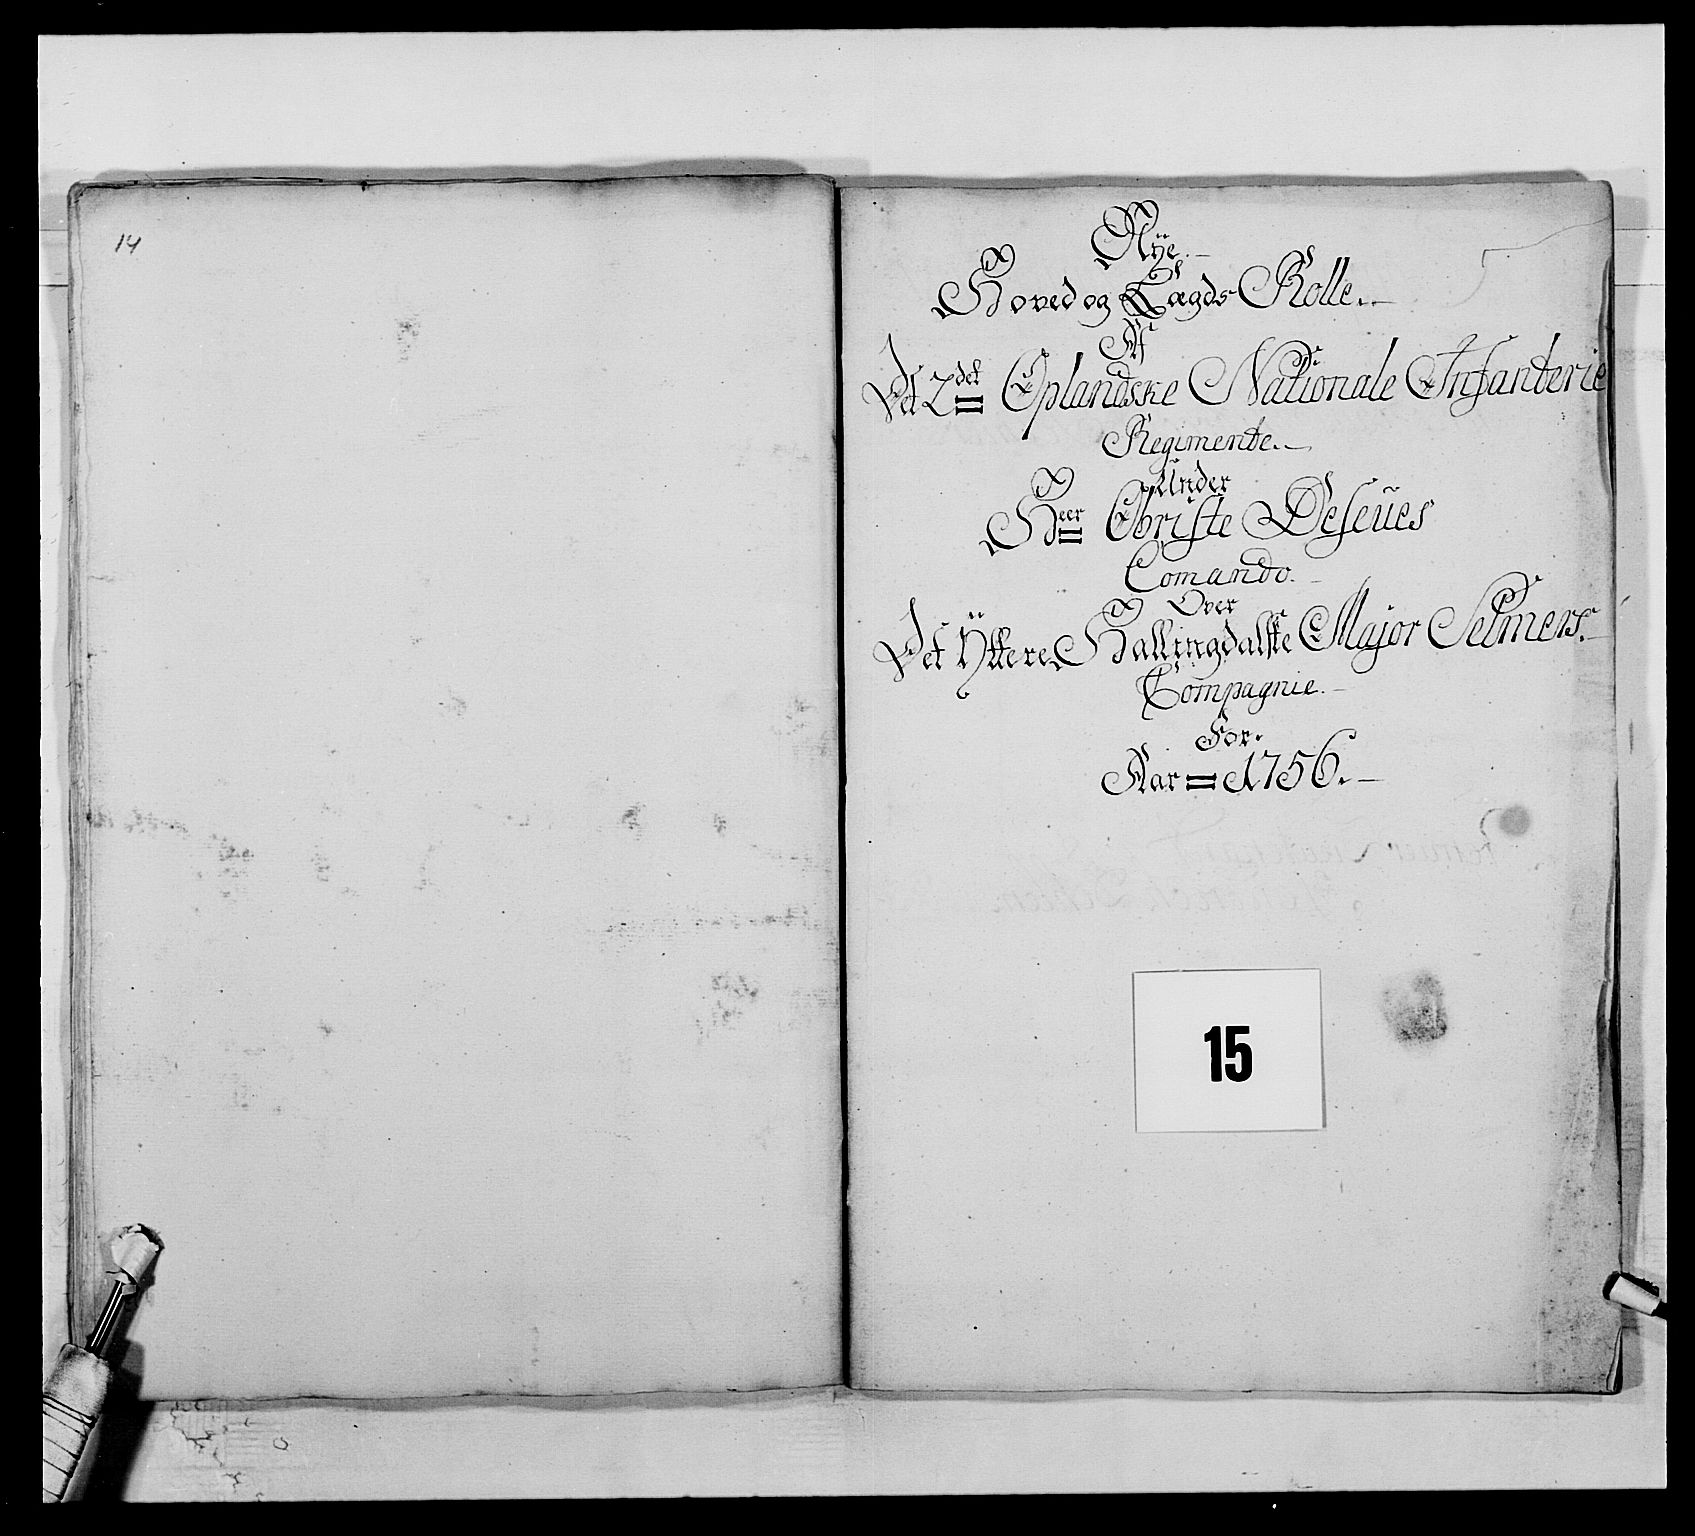 14
Nÿe.
Hoved og Lægds Rolle.
Af
Det 2det Oplandske Nationale Infanterie
Regimente.
Under
Heer Obriste Deseües
Comando.
Over
Det Ÿttere Hallingdalske Major Selmers
Compagnie.
For.
Aar = 1756.
15